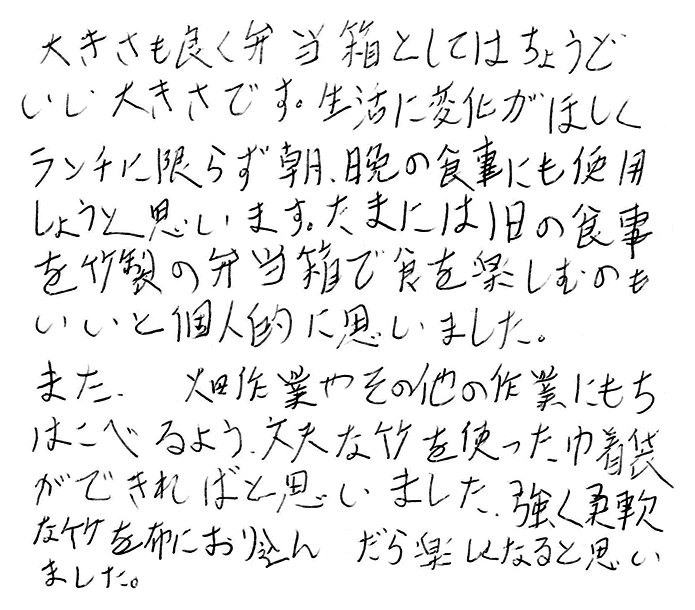 大きさも良く弁当箱としてはちょうど
いい大きさです。生活に変化がほしく
ランチに限らず朝、晩の食事にも使用
しようと思います。たまには1日の食事
を竹製の弁当箱で食を楽しむのも
いいと個人的に思いました。
また、畑作業やその他の作業にもち
はこべるよう、丈夫な竹を使った巾着袋
ができればと思いました、強く柔軟
な竹を布におり込んだら楽しくなると思い
ました。